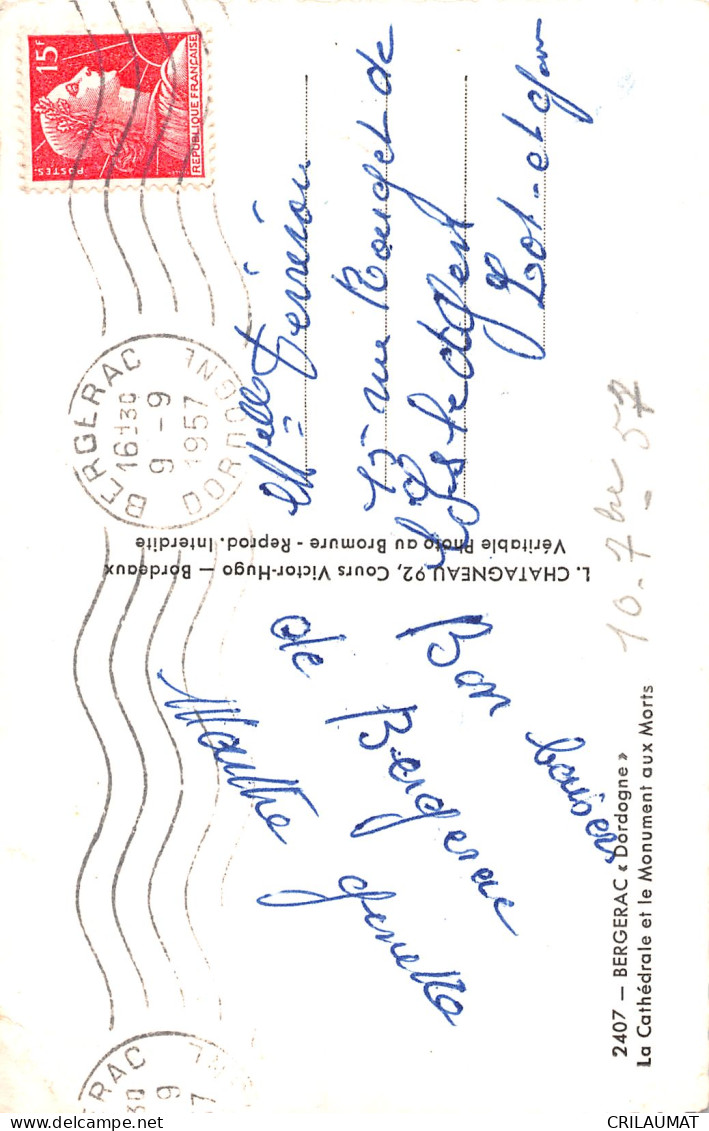 2407 — BERGERAC « Dordogne »
La Cathédrale et le Monument aux Morts
Bon baisers
de Bergerac
Marthe Ginette
L. CHATAGNEAU 92, Cours Victor-Hugo — Bordeaux
Véritable Photo au Bromure - Reprod. Interdite
15F
POSTES
REPUBLIQUE FRANÇAISE
BERGERAC
16H30
9 - 9
1957
DORDOGNE
Melle
15 rue Rouget de
Lot-et-Gar
10-7bre-57
RAC
30
9
57
GNE
CRILAUMAT